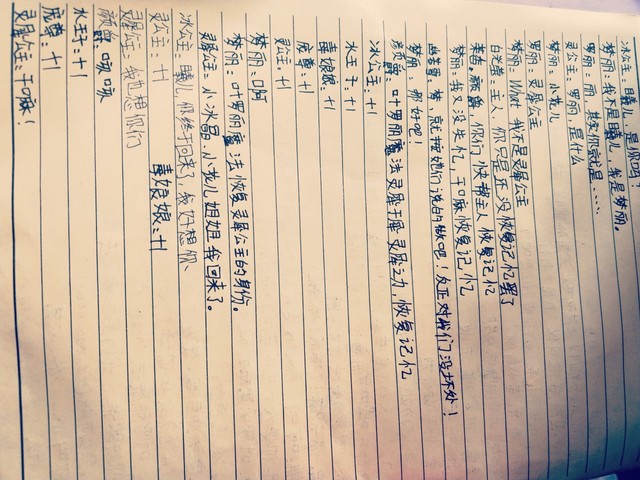 冰公主：瞳儿，是你吗
梦丽：我不是瞳儿，我是梦丽。
罗丽：丽，其实你就是……
灵公主：罗丽，是什么
梦丽：小花儿
罗丽：灵犀公主
梦丽：What 我不是灵犀公主
白光莹：主人，你只是还没恢复记忆罢了
茉香、颜爵：你们快帮主人恢复记忆
梦丽：我又没失忆，干嘛恢复记忆
梦，就按她们说的做吧！反正对我们没坏处！
梦丽：那好吧！
颜爵：叶罗丽魔法灵犀于犀 灵犀之力，恢复记忆
冰公主：十1
水王子：十1
毒娘娘：十1
庞尊：十1
灵公主：十1
梦丽：啊
梦丽：叶罗丽魔法恢复灵犀公主的身份。
灵犀公主：小冰晶、小花儿姐姐我回来了。
冰公主：瞳儿，你终于回来了，我好想你、
灵公主：十1 毒娘娘：十1
灵犀公主：我也想你们
颜爵：咳咳
水王子：十1
庞尊：十1
灵犀公主：干嘛！